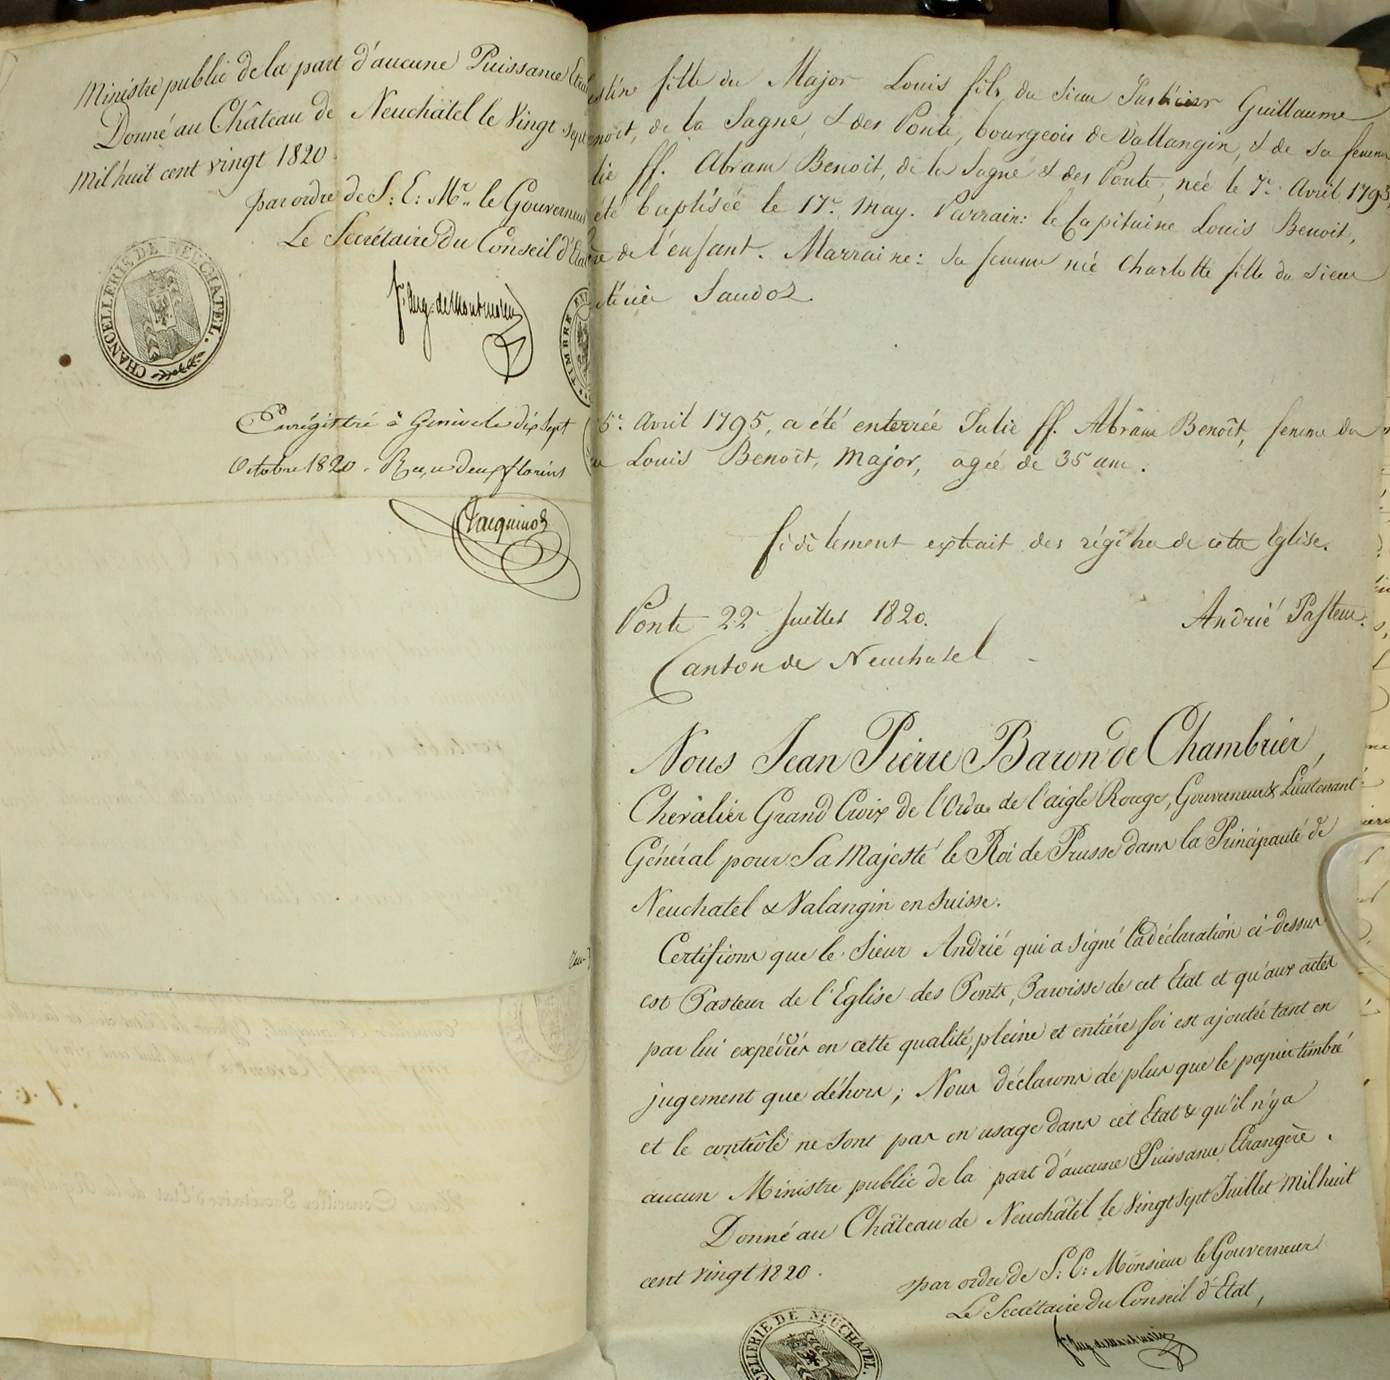 Ministre public de la part d'aucune Puissance
Donné au Château de Neuchâtel le Vingt sept
mil huit cent vingt 1820
par ordre de S: E: Mr. le Gouverneur
Le Secrétaire du Conseil d'Etat
CHANCELLERIE DE NEUCHATEL.
TIMBRE
Enrégistré à Genève le dix Sept
Octobre 1820. Reçu deux florins
fille du Major Louis fils du Sieur Justicier Guillaume
de la Sagne, & des Ponts, bourgeois de Vallangin, & de sa femme
ff. Abram Benoit, de la Sagne & des Ponts, née le 7e. Avril 1793,
été baptisée le 17e. May. Parrain: le Capitaine Louis Benoit,
de l'enfant. Marraine: sa femme née Charlotte fille du Sieur
Sandoz.
5e. Avril 1795, a été enterrée Julie ff. Abram Benoît, femme du
Louis Benoît, Major, agée de 35 ans.
fidélement extrait des régîtres de cette Eglise.
Ponts 22e Juillet 1820. Andrié Pasteur.
Canton de Neuchatel
Nous Jean Pierre Baron de Chambrier,
Chevalier Grand Croix de l'Ordre de l'aigle Rouge, Gouverneur & Lieutenant
Général pour Sa Majesté le Roi de Prusse dans la Principauté de
Neuchatel & Valangin en Suisse.
Certifions que le Sieur Andrié qui a signé la déclaration ci-dessus
est Pasteur de l'Eglise des Ponts, Paroisse de cet Etat et qu'aux actes
par lui expédiés en cette qualité, pleine et entiére foi est ajoutée tant en
jugement que déhors; Nous déclarons de plus que le papier timbré
et le contrôle ne sont pas en usage dans cet Etat & qu'il n'y a
aucun Ministre public de la part d'aucune Puissance Etrangère.
Donné au Château de Neuchâtel le Vingt Sept Juillet Mil huit
cent vingt 1820.
par ordre de S: E: Monsieur le Gouverneur
Le Secrétaire du Conseil d'Etat,
CHANCELLERIE DE NEUCHATEL.